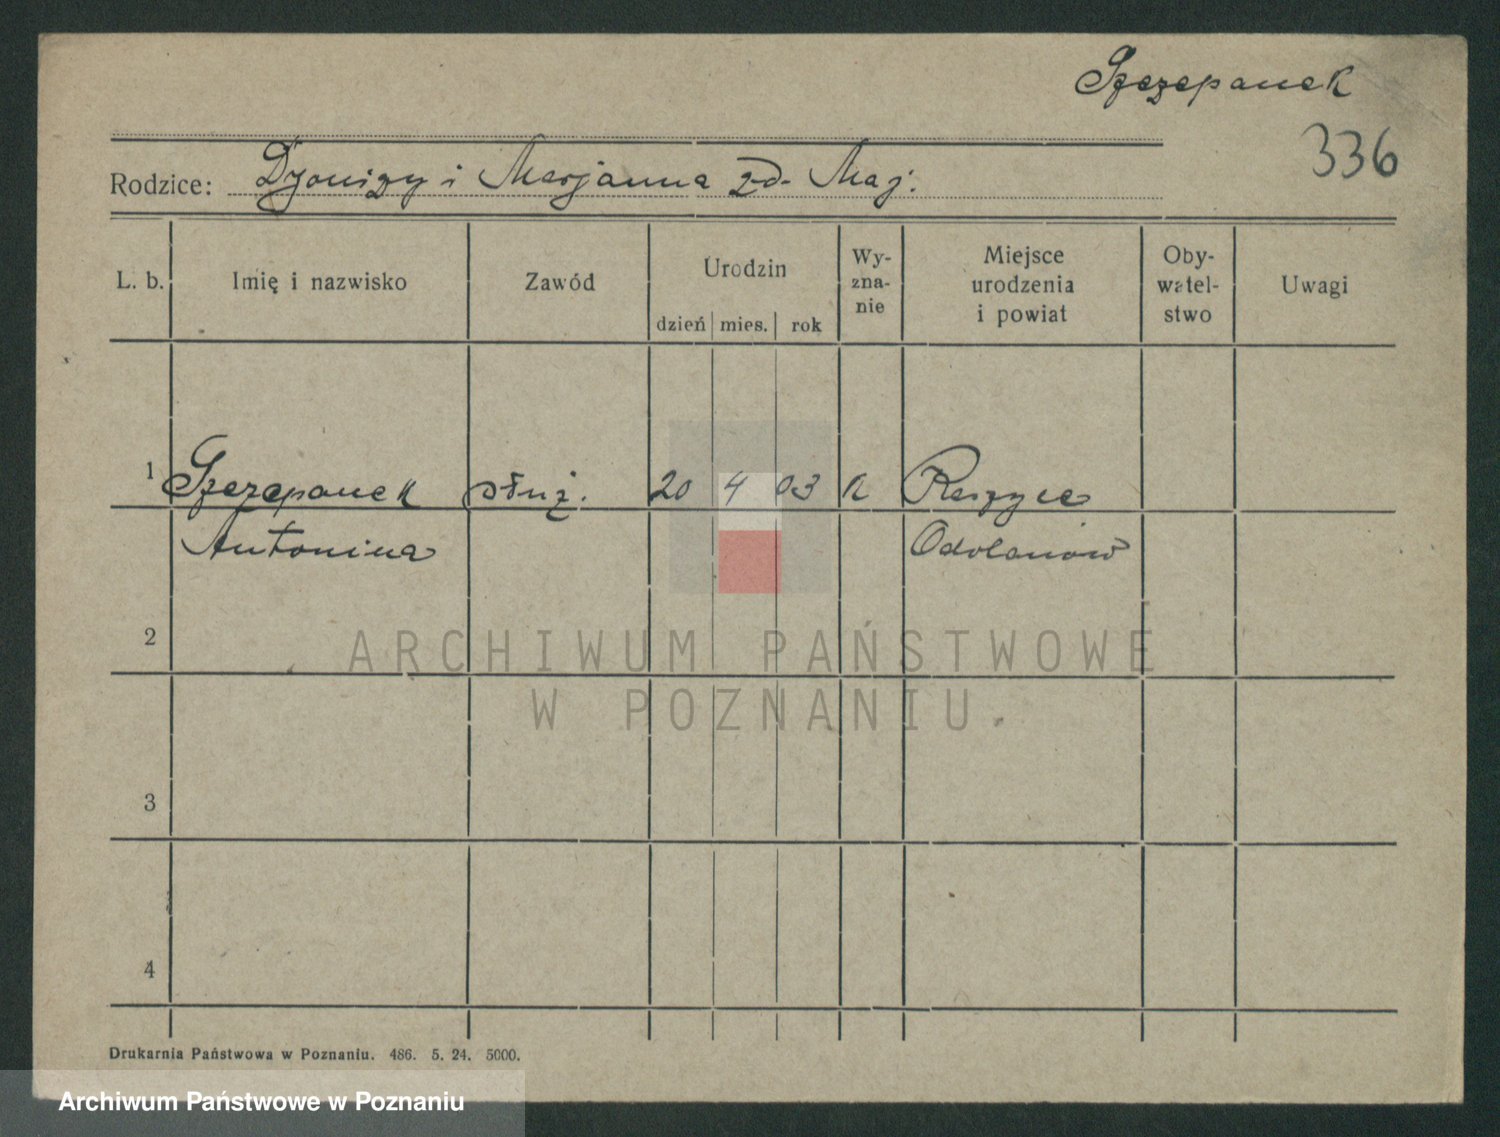 Szczepanek
336
Rodzice: Dyonizy i Marjanna z d. Maj.
L. b. Imię i nazwisko Zawód Urodzin dzień mies. rok Wy-zna-nie Miejsce urodzenia i powiat Oby-watel-stwo Uwagi
1 Szczepanek służ. 20 4 03 k Raszyce
Antonina Odolanów
2
ARCHIWUM PAŃSTWOWE
W POZNANIU.
3
4
Drukarnia Państwowa w Poznaniu. 486. 5. 24. 5000.
Archiwum Państwowe w Poznaniu